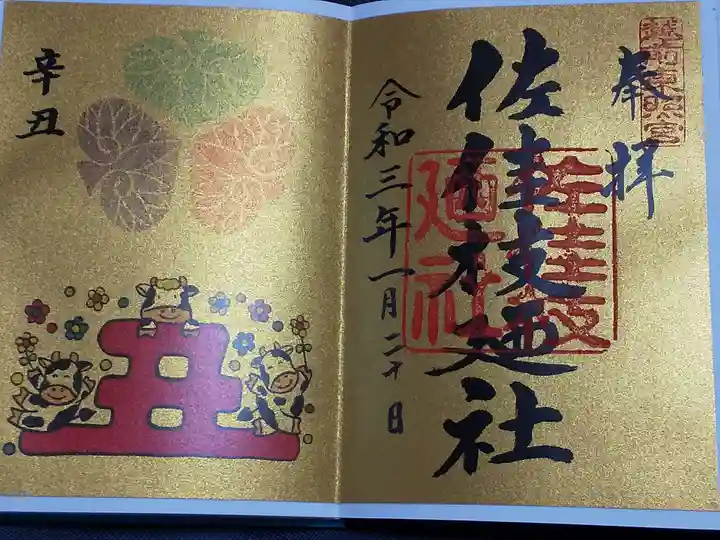 越前東照宮
奉拝
佐佳枝廼社
佐佳枝
廼社
令和三年一月二十日
辛丑
丑